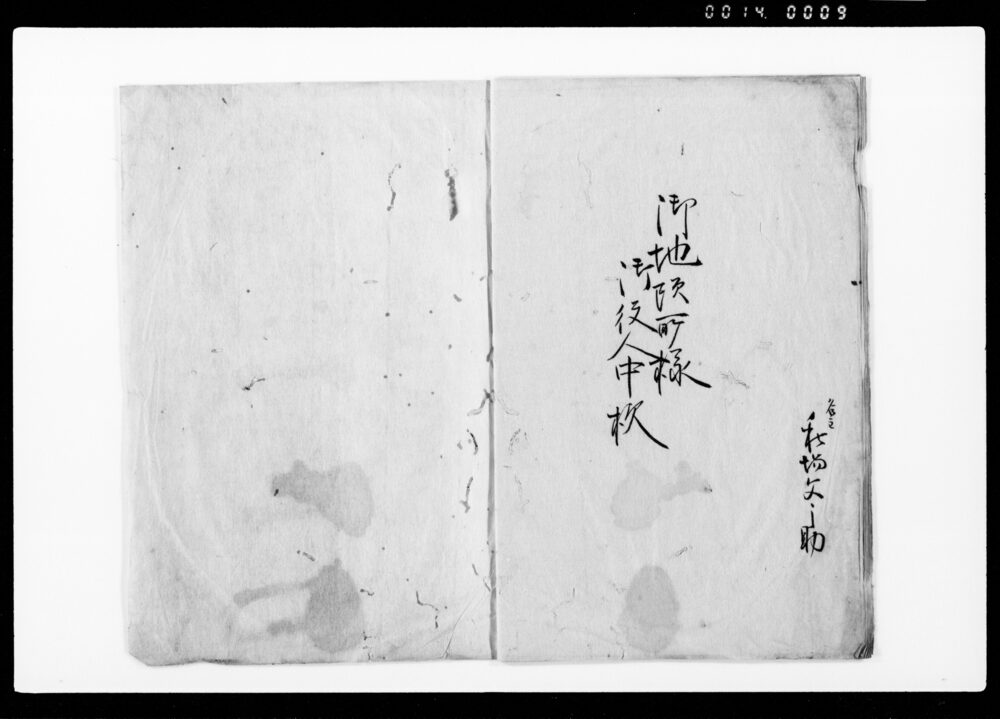 0014 0009
御地頭所様
御役人中様
名主
秋場文之助